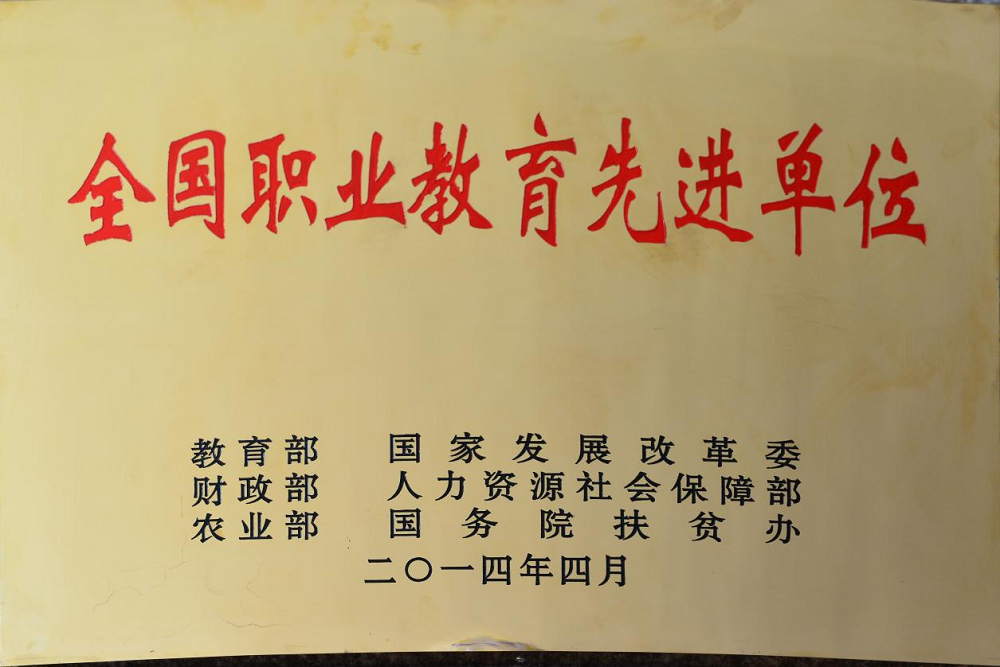 全国职业教育先进单位
教育部 国家发展改革委
财政部 人力资源社会保障部
农业部 国务院扶贫办
二〇一四年四月